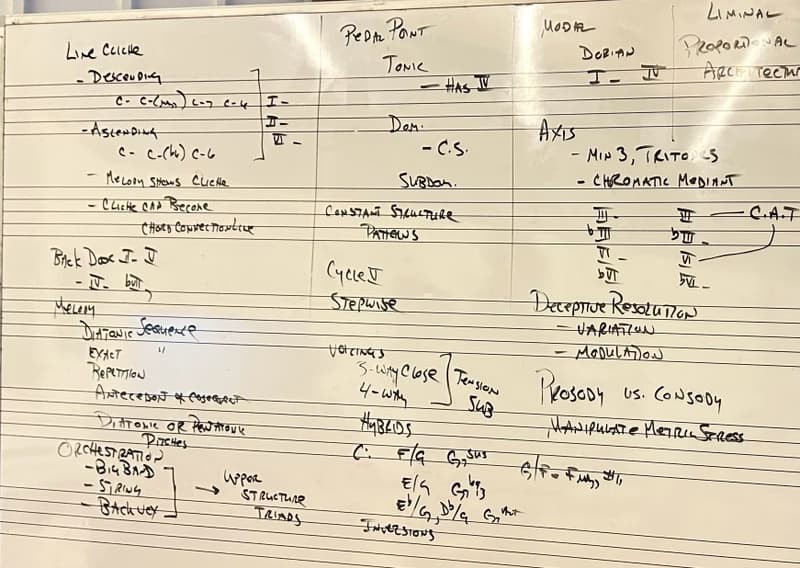 Line Cliche
- Descending
C- C-(maj7) C-7 C-6
I-
II-
VI-
- Ascending
C- C-(b6) C-6
- Melody shows Cliche
- Cliche can Become
Chord Connection Line
Back Door II- V
- IV- bVII7
Melody
Diatonic Sequence
Exact "
Repetition
Antecedent & Consequent
Diatonic or Pentatonic
Pitches
Orchestration
- Big Band
- String
- Back Vox
→ Upper
Structure
Triads
Pedal Point
Tonic
- Has IV
Dom.
- C.S.
Subdom.
Constant Structure
Patterns
Cycle V
Stepwise
Voicings
3-way Close
4-way
Tension
Sub
Hybrids
C: F/G G7sus
E/G G7b9 13
Eb/G, Db/G G7alt
G/F = Fmaj7 #11
Inversions
Modal
Dorian
I- IV
Axis
- Min 3, Tritones
- Chromatic Mediant
III- III - C.A.T
bIII bIII-
VI- VI
bVI bVI-
Deceptive Resolution
- Variation
- Modulation
Prosody vs. Consody
Manipulate Metric Stress
Liminal
Proportional
Architectur